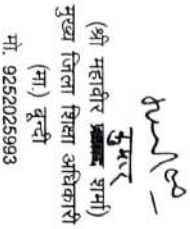 (श्री महावीर कुमार शर्मा)
मुख्य जिला शिक्षा अधिकारी
(मा.) बून्दी
मो. 9252025993